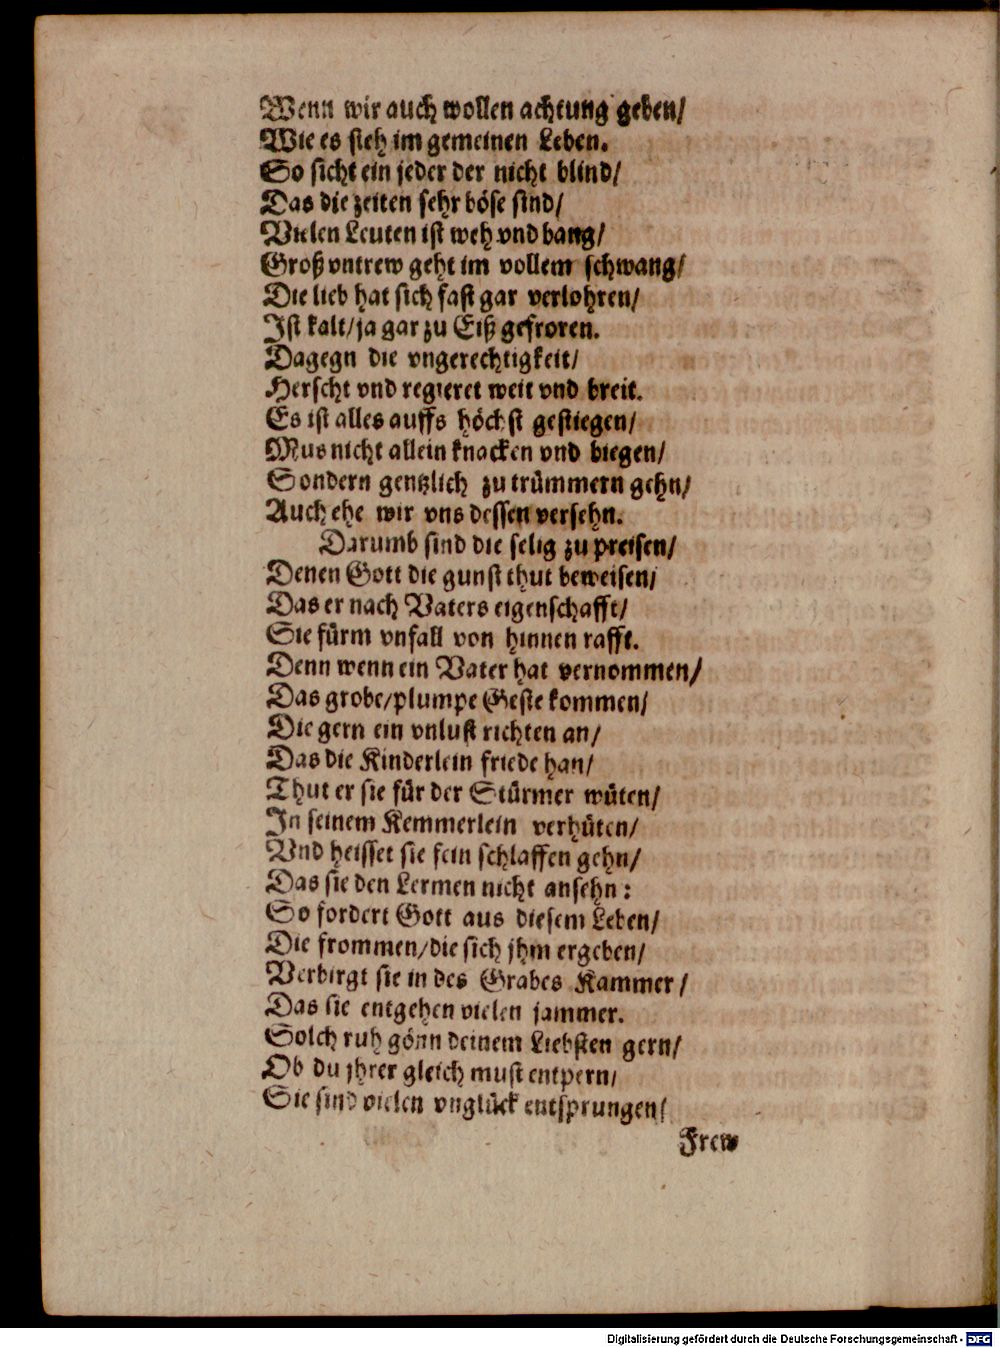 Wenn wir auch wollen achtung geben/
Wie es sieh im gemeinen Leben.
So sicht ein jeder der nicht blind/
Das die zeiten sehr böse sind/
Vielen Leuten ist weh vnd bang/
Groß vntrew geht im vollem schwang/
Die lieb hat sich fast gar verlohren/
Ist kalt/ja gar zu Eiß gefroren.
Dagegn die vngerechtigkeit/
Herscht vnd regieret weit vnd breit.
Es ist alles auffs höchst gestiegen/
Mus nicht allein knacken vnd biegen/
Sondern gentzlich zu trümmern gehn/
Auch ehe wir vns dessen versehn.
Darumb sind die selig zu preisen/
Denen Gott die gunst thut beweisen/
Das er nach Vaters eigenschafft/
Sie fürm vnfall von hinnen rafft.
Denn wenn ein Vater hat vernommen/
Das grobe/plumpe Geste kommen/
Die gern ein vnlust richten an/
Das die Kinderlein friede han/
Thut er sie für der Stürmer wüten/
In seinem Kemmerlein verhüten/
Vnd heisset sie fein schlaffen gehn/
Das sie den Lermen nicht ansehn:
So fordert Gott aus diesem Leben/
Die frommen/die sich jhm ergeben/
Verbirgt sie in des Grabes Kammer/
Das sie entgehen vielen jammer.
Solch ruh gönn deinem Liebsten gern/
Ob du jhrer gleich must entpern/
Sie sind vielen vnglück entsprungen/
Frew
Digitalisierung gefördert durch die Deutsche Forschungsgemeinschaft - DFG